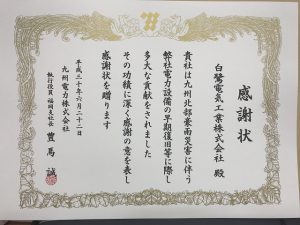 感謝状
白鷺電気工業株式会社 殿
貴社は九州北部豪雨災害に伴う
弊社電力設備の早期復旧等に際し
多大な貢献をされました
その功績に深く感謝の意を表し
感謝状を贈ります
平成三十年六月二十一日
九州電力株式会社
執行役員 福岡支社長 豊馬 誠